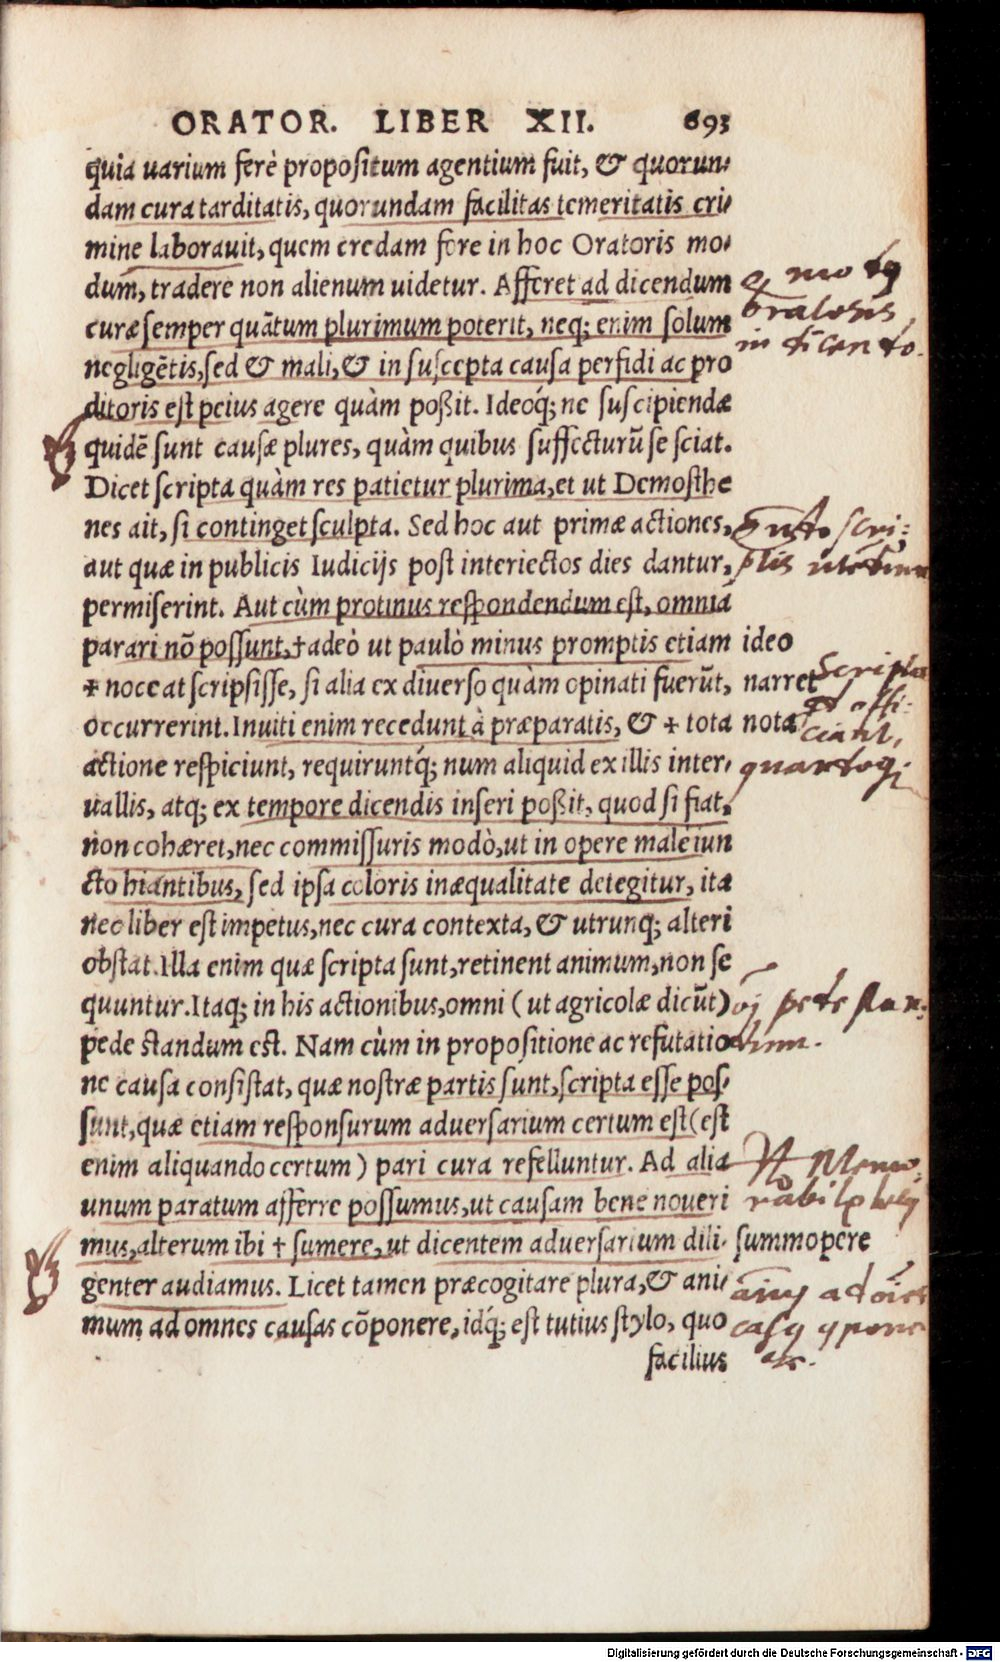 ORATOR. LIBER XII. 693
quia uarium ferè propositum agentium fuit, & quorun-
dam cura tarditatis, quorundam facilitas temeritatis cri-
mine laborauit, quem credam fore in hoc Oratoris mo-
dum, tradere non alienum uidetur. Afferet ad dicendum
curæ semper quātum plurimum poterit, neq; enim solum
negligētis, sed & mali, & in suscepta causa perfidi ac pro
ditoris est peius agere quàm poßit. Ideoq́; ne suscipiendæ
quidē sunt causæ plures, quàm quibus suffecturū se sciat.
Dicet scripta quàm res patietur plurima, et ut Demosthe
nes ait, si continget sculpta. Sed hoc aut primæ actiones,
aut quæ in publicis Iudicijs post interiectos dies dantur,
permiserint. Aut cùm protinus respondendum est, omnia
parari nō possunt, † adeò ut paulò minus promptis etiam ideo
† noceat scripsisse, si alia ex diuerso quàm opinati fuerūt, narret
occurrerint. Inuiti enim recedunt à præparatis, & † tota nota
actione respiciunt, requiruntq́; num aliquid ex illis inter-
uallis, atq; ex tempore dicendis inseri poßit, quod si fiat,
non cohæret, nec commissuris modò, ut in opere malè iun
cto hiantibus, sed ipsa coloris inæqualitate detegitur, ita
nec liber est impetus, nec cura contexta, & utrunq; alteri
obstat. Illa enim quæ scripta sunt, retinent animum, non se
quuntur. Itaq; in his actionibus, omni (ut agricolæ dicūt)
pede standum est. Nam cùm in propositione ac refutatio
ne causa consistat, quæ nostræ partis sunt, scripta esse pos-
sunt, quæ etiam responsurum aduersarium certum est (est
enim aliquando certum) pari cura refelluntur. Ad alia
unum paratum afferre possumus, ut causam bene noueri
mus, alterum ibi † sumere, ut dicentem aduersarium dili- summopere
genter audiamus. Licet tamen præcogitare plura, & ani-
mum ad omnes causas cōponere, idq́; est tutius stylo, quo
facilius
oratoris
in dicendo.
scripta
Digitalisierung gefördert durch die Deutsche Forschungsgemeinschaft - DFG